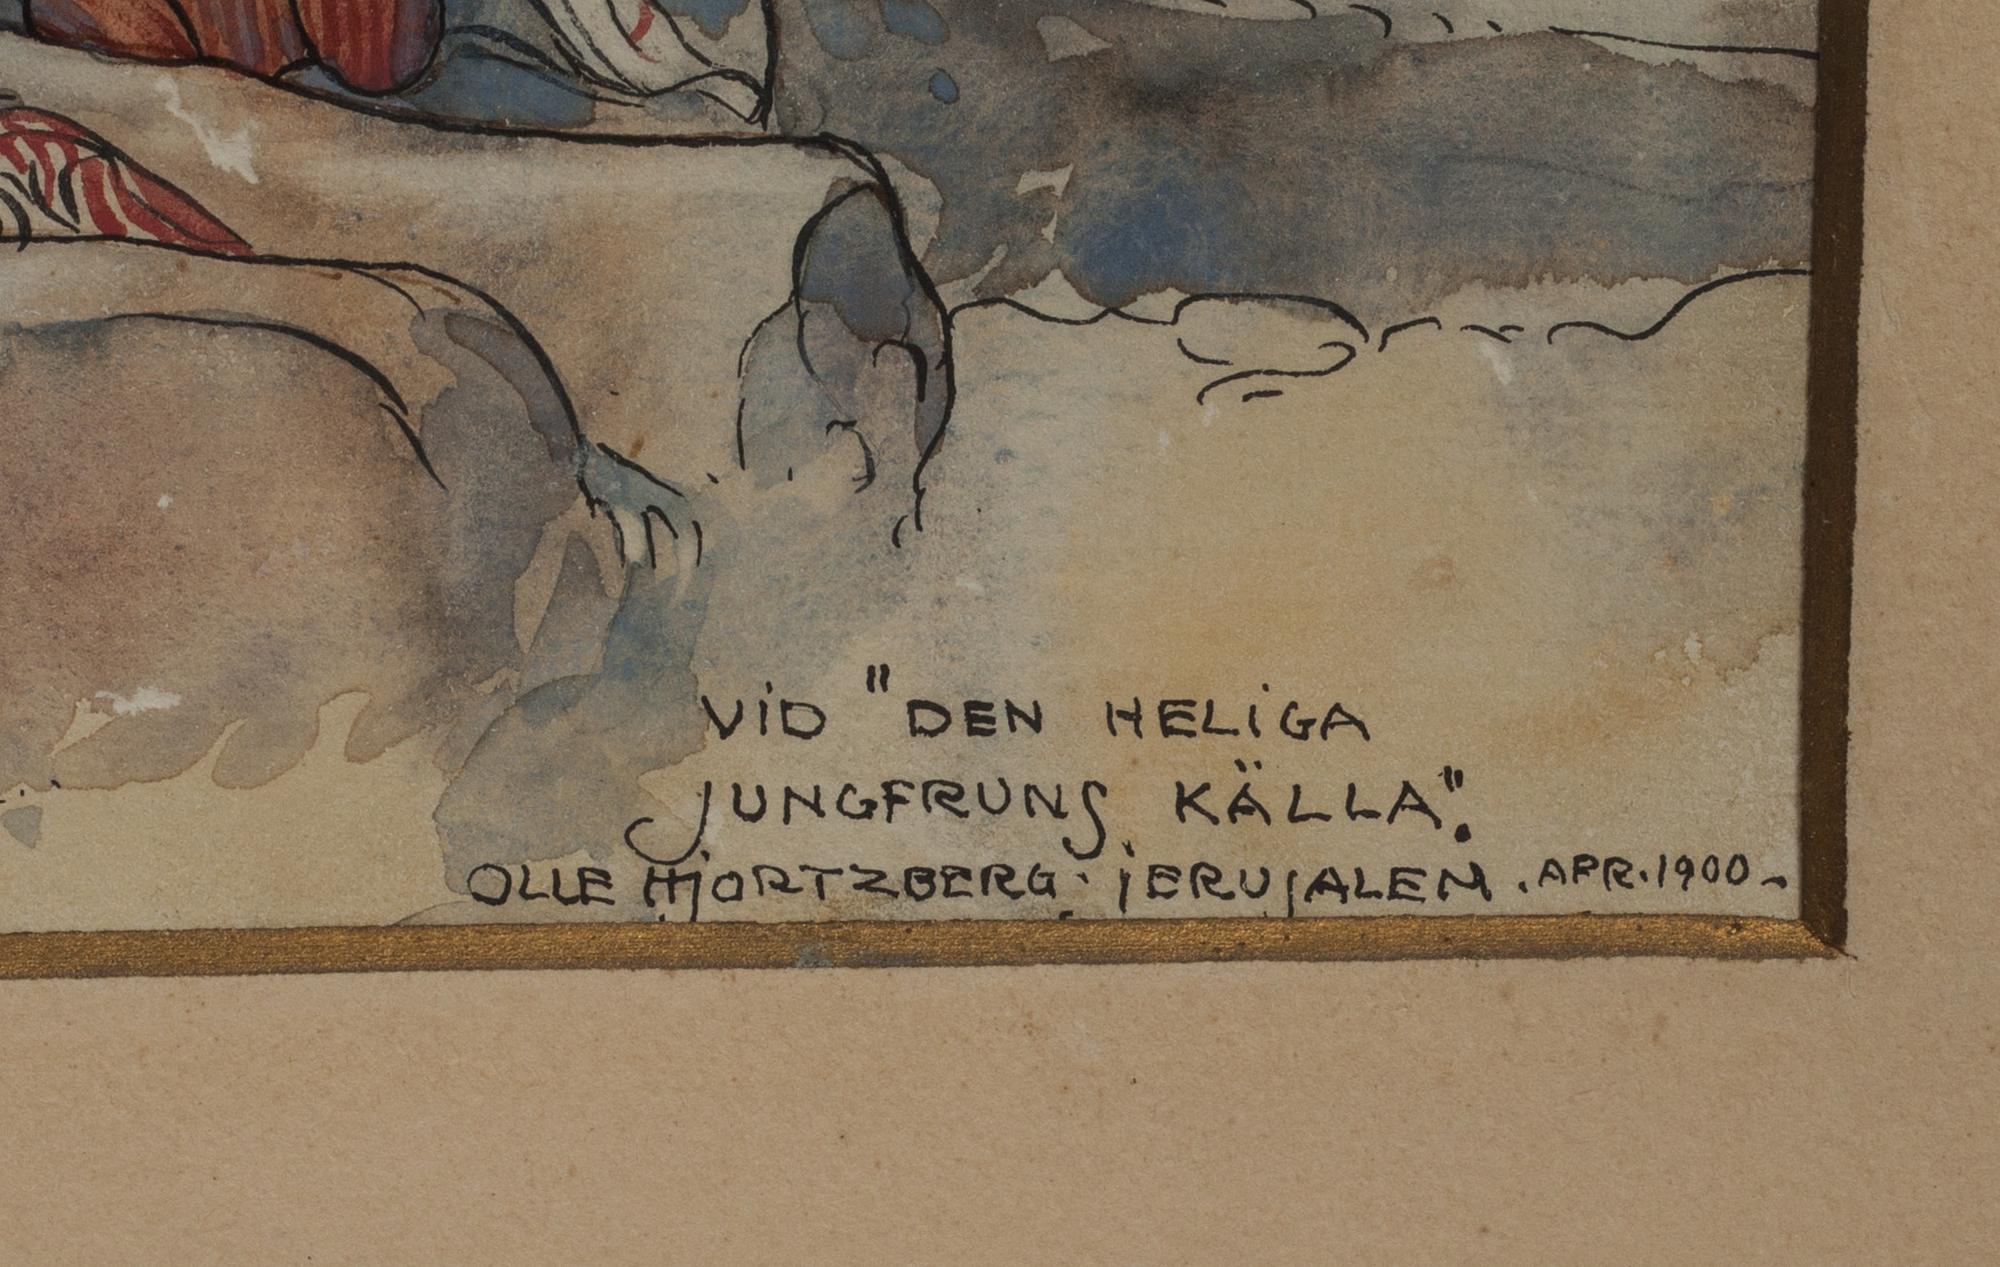 ViD "DEN HELiGA
JUNGFRUNS KÄLLA".
OLLE HJORTZBERG. jERUSALEM. APR. 1900-